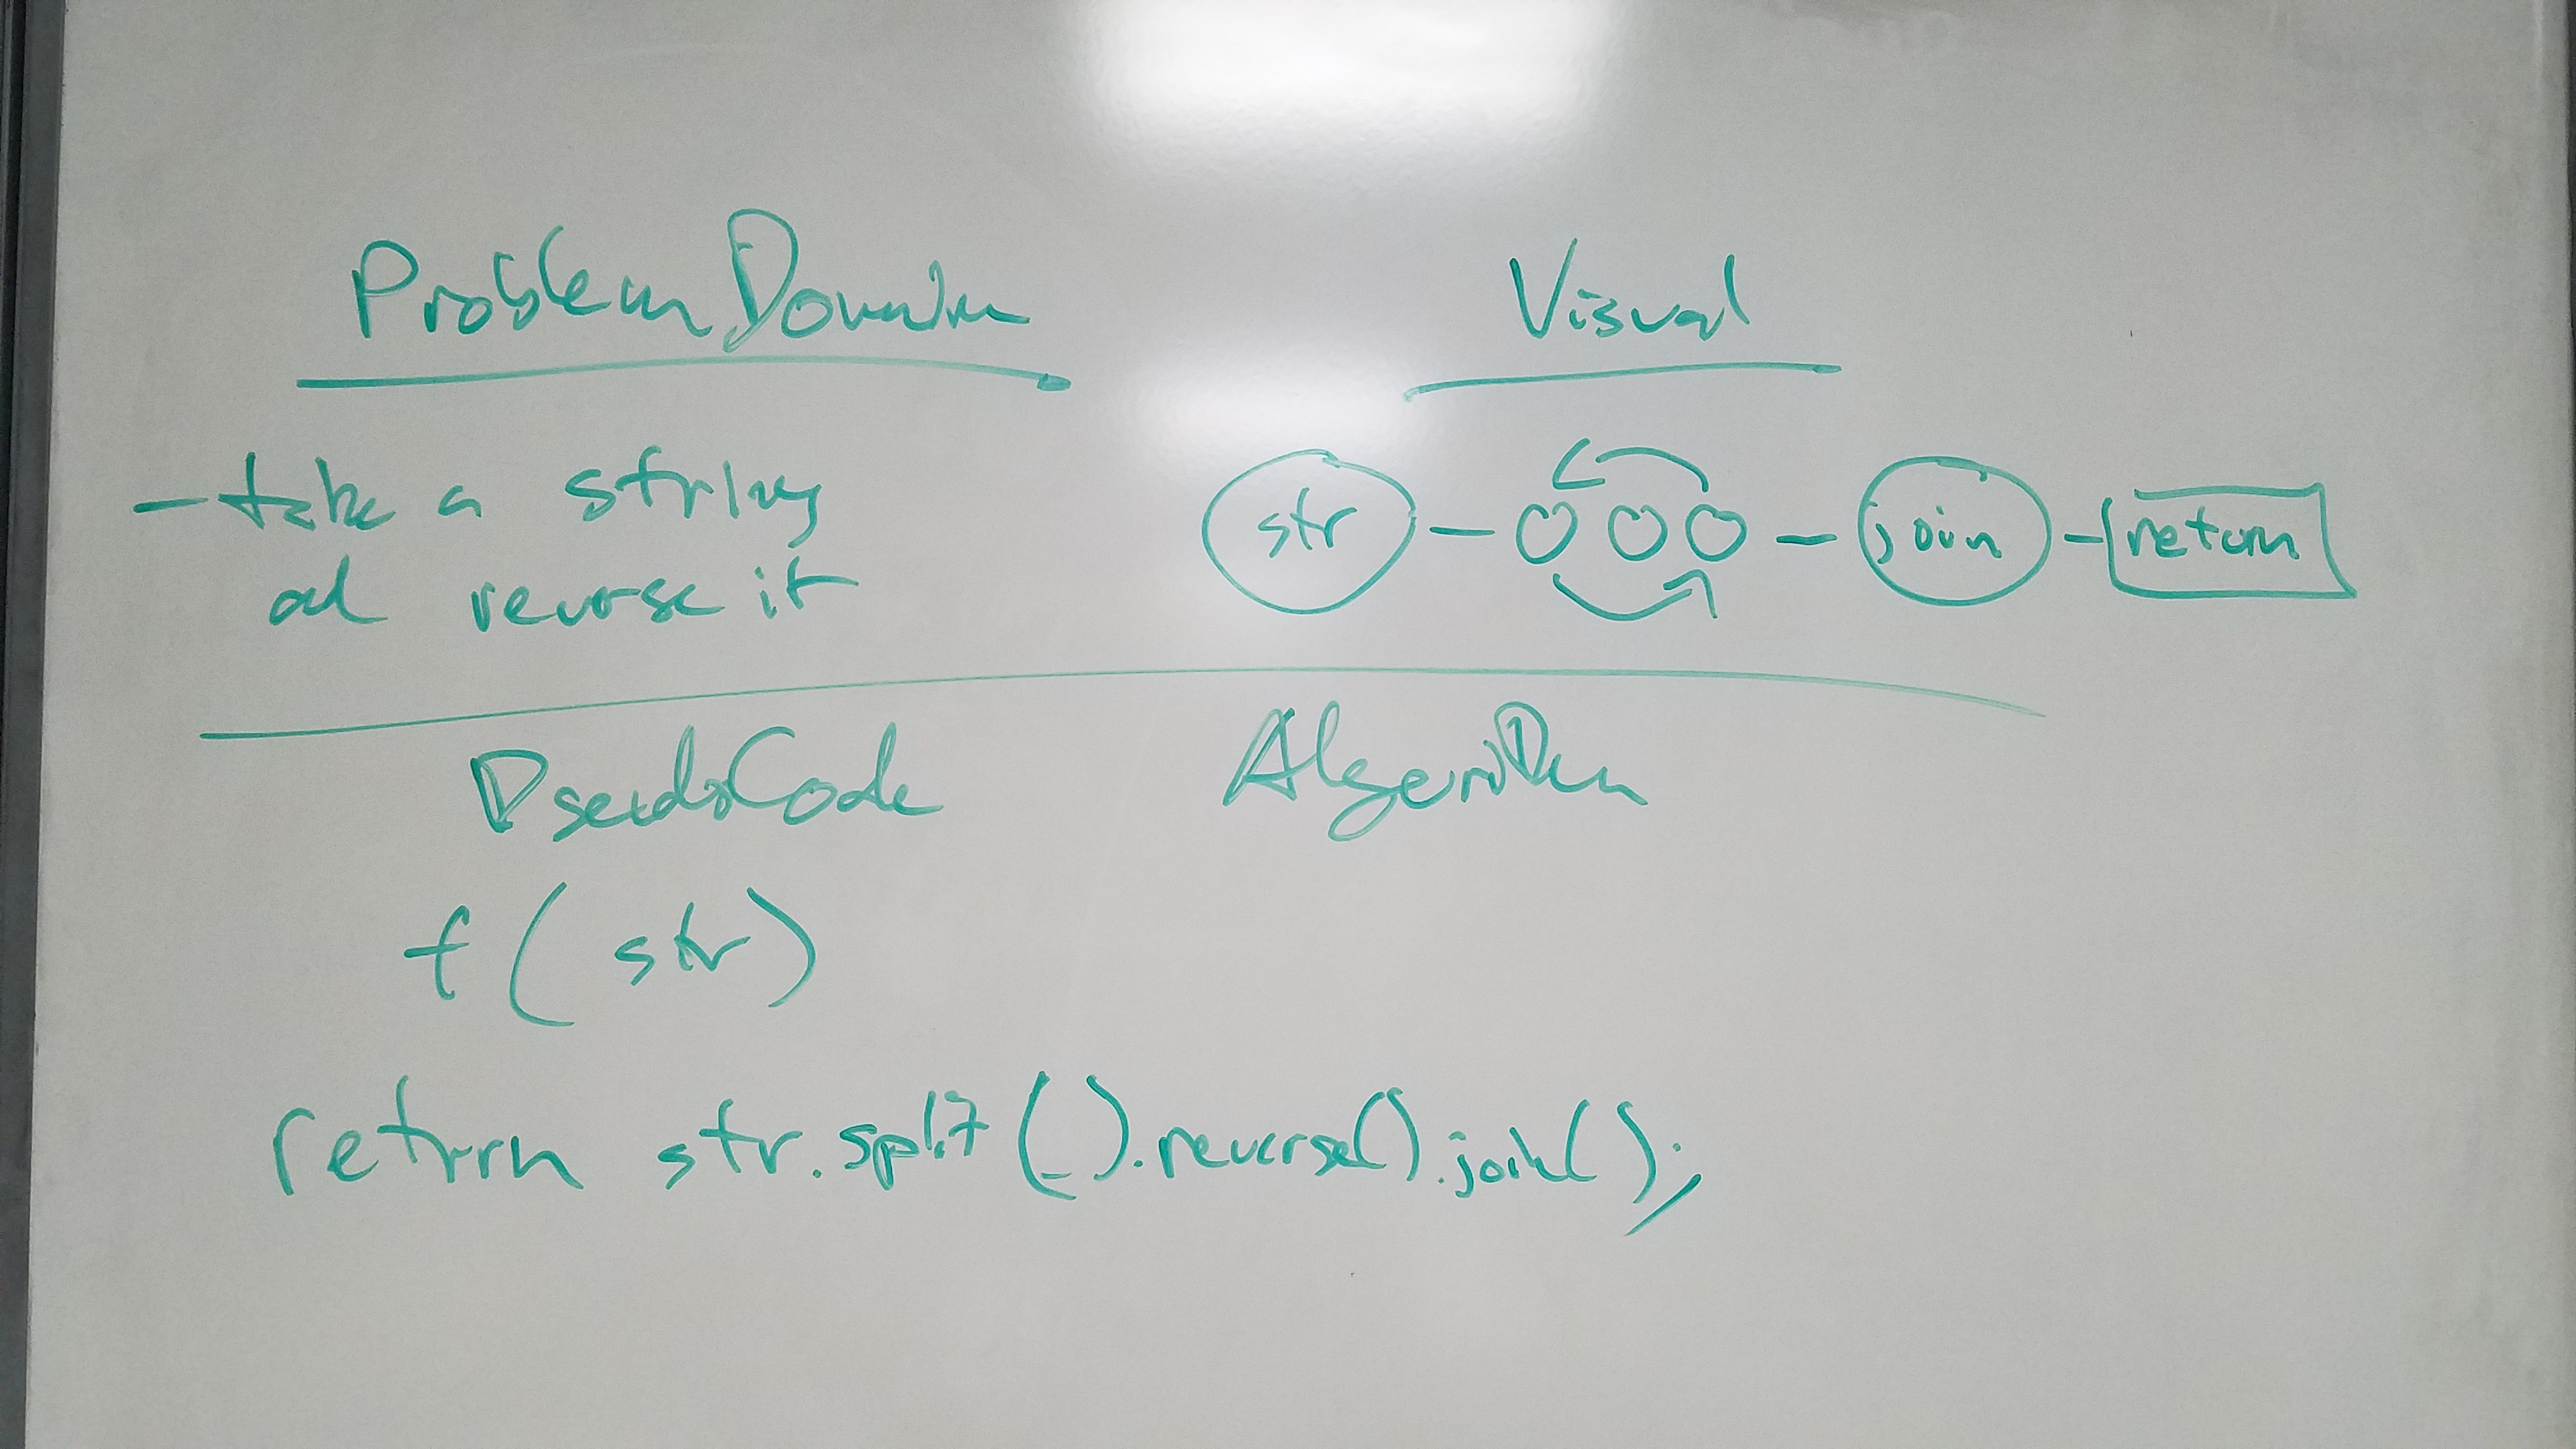 Problem Domain
- take a string
ad reverse it
Visual
str - O O O - join - return
PseudoCode
f( str)
return str.split(_).reverse().join();
Algorithm